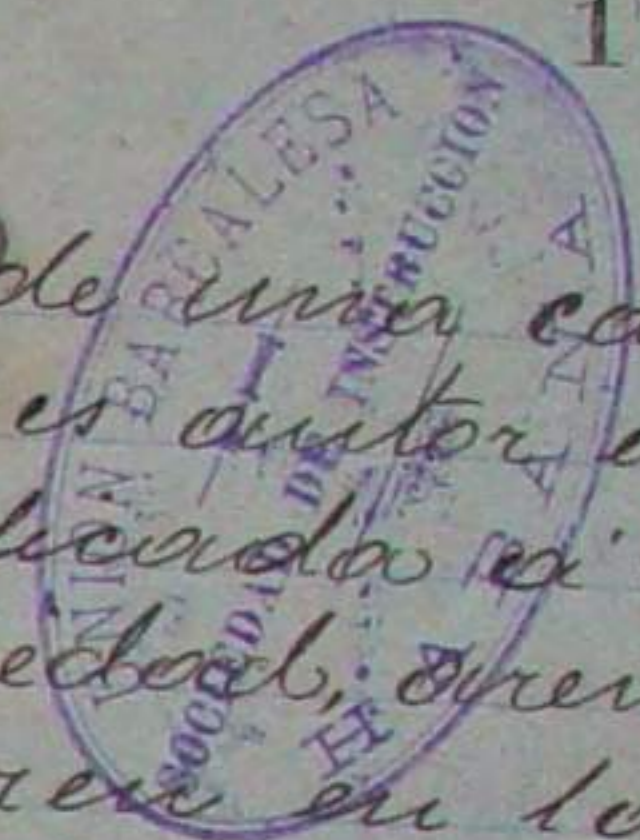 1
UNION BARCALESA
SOCIEDAD DE INSTRUCCION
HABANA
de una ca
es autor
licada a'
edad,
ren en lo